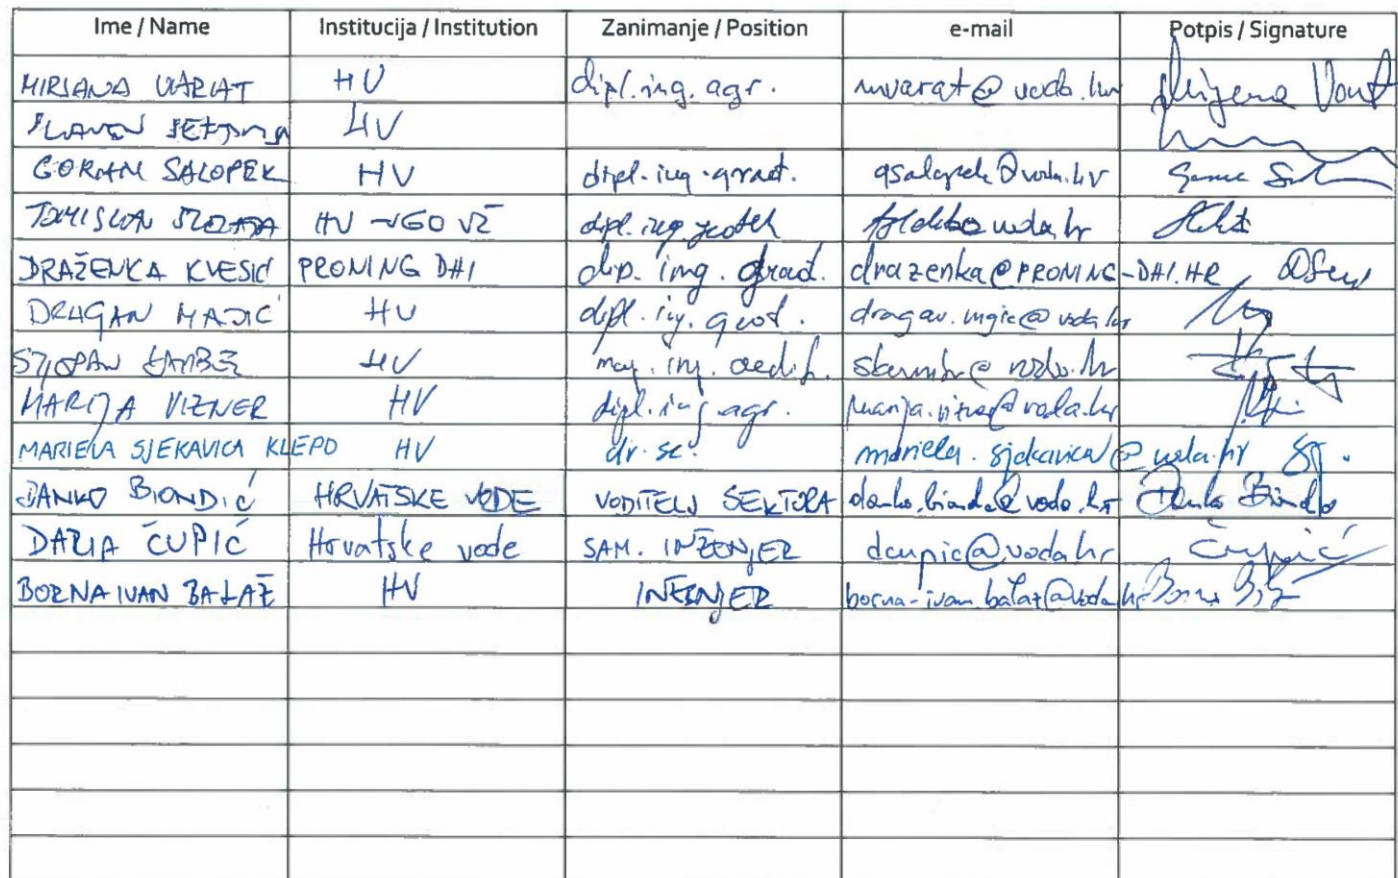 Ime / Name Institucija / Institution Zanimanje / Position e-mail Potpis / Signature
MIRJANA HV dipl.ing.agr. mvarat@voda.hr
HV
GORAN SALOPEK HV dipl.ing.građ. gsalopek@voda.hr
TOMISLAV HV VGO VŽ dipl.ing.geoteh
DRAŽENKA KVESIĆ PRONING DHI dip. ing. građ. drazenka@PRONING-DHI.HR
DRAGAN MAJIC HV dipl. ing. dragan.
STJEPAN HV mag. ing. aedif.
MARIJA VIZNER HV dipl.ing.agr. marija.vizner@voda.hr
MARIELA SJEKAVICA KLEPO HV dr.sc. mariela.sjekavica@voda.hr
DANKO BIONDIĆ HRVATSKE VODE VODITELJ SEKTORA danko.biondic@voda.hr Danko Biondić
DARIA ČUPIĆ Hrvatske vode SAM. INŽENJER dcupic@voda.hr Čupić
BORNA IVAN BALAŽ HV INŽENJER borna-ivan.balaz@voda.hr